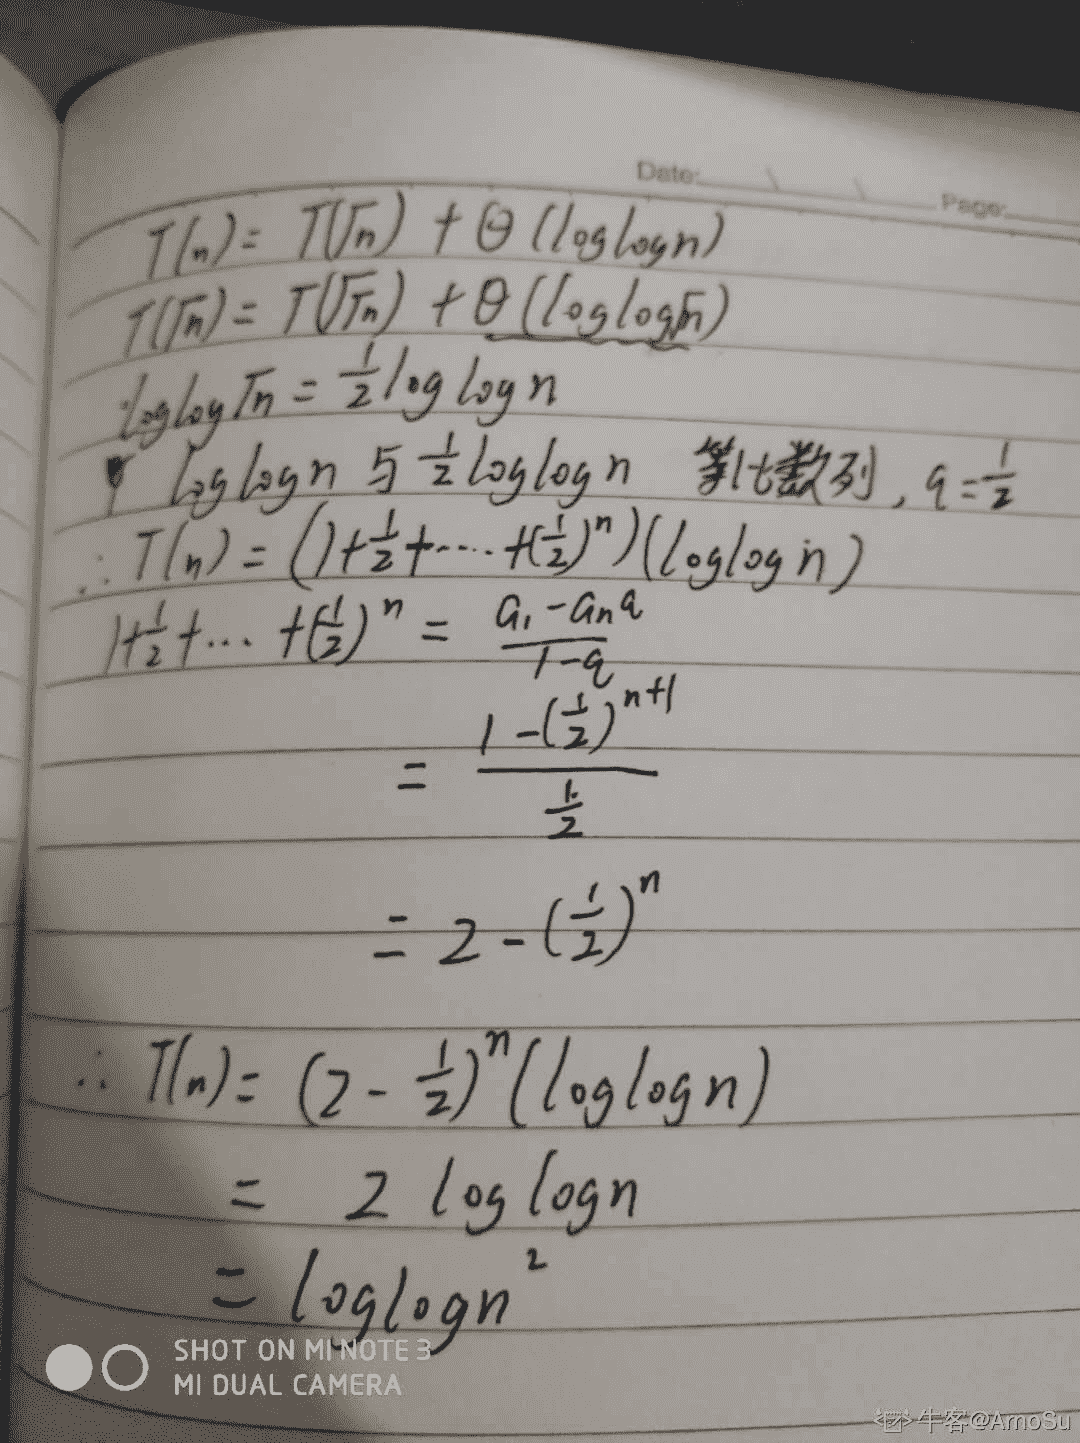 Date:
Page:
T(n) = T(√n) + Θ(loglogn)
T(√n) = T(√√n) + Θ(loglog√n)
loglog√n = 1/2 loglogn
loglogn 与 1/2 loglogn 等比数列, q = 1/2
∴ T(n) = (1+1/2+····+(1/2)^n)(loglogn)
1+1/2+··· +(1/2)^n = (a₁-aₙq)/(1-q)
= (1-(1/2)^(n+1))/(1/2)
= 2-(1/2)^n
∴ T(n) = (2-1/2)^n(loglogn)
= 2 loglogn
= loglogn²
SHOT ON MI NOTE 3
MI DUAL CAMERA
牛客@AmoSu